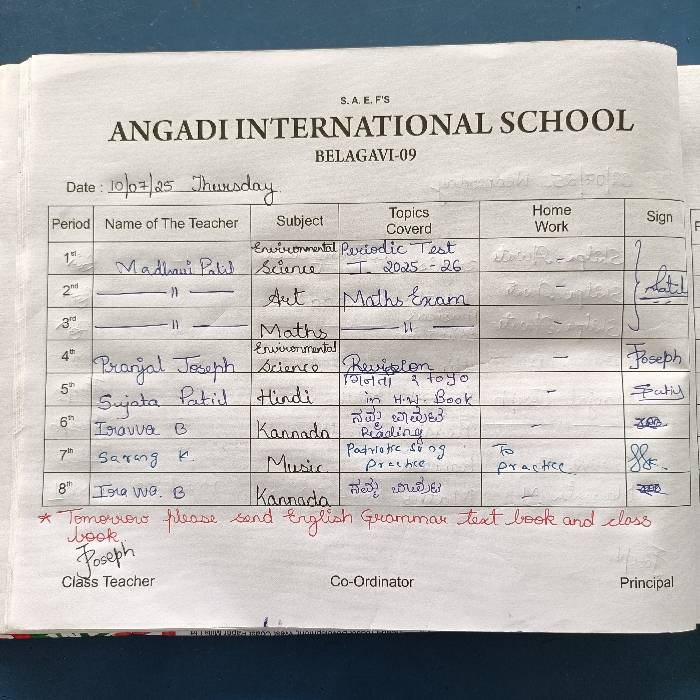 S. A. E. F'S
ANGADI INTERNATIONAL SCHOOL
BELAGAVI-09
Date : 10/07/25 Thursday
Period Name of The Teacher Subject Topics Coverd Home Work Sign
1st Madhavi Patil Environmental Science Periodic Test I 2025 - 26 -
2nd —— 11 —— Art Maths Exam - Patil
3rd —— 11 —— Maths —— 11 —— -
4th Pranjal Joseph Environmental Science Revision — Joseph
5th Sujata Patil Hindi गिनती १ to १० in H.W. Book -
6th Iravva B Kannada ನಮ್ಮ ಬಾವುಟ Reading -
7th Sarang K. Music Patriotic song practice To practice.
8th Iravva. B Kannada ನಮ್ಮ ಬಾವುಟ -
* Tomorrow please send English Grammar text book and class
book.
Joseph
Class Teacher Co-Ordinator Principal